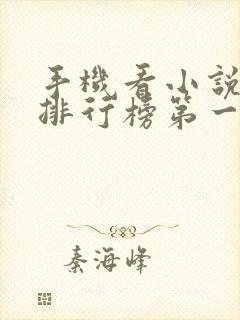 手機看小說
排行榜第一
秦海峰